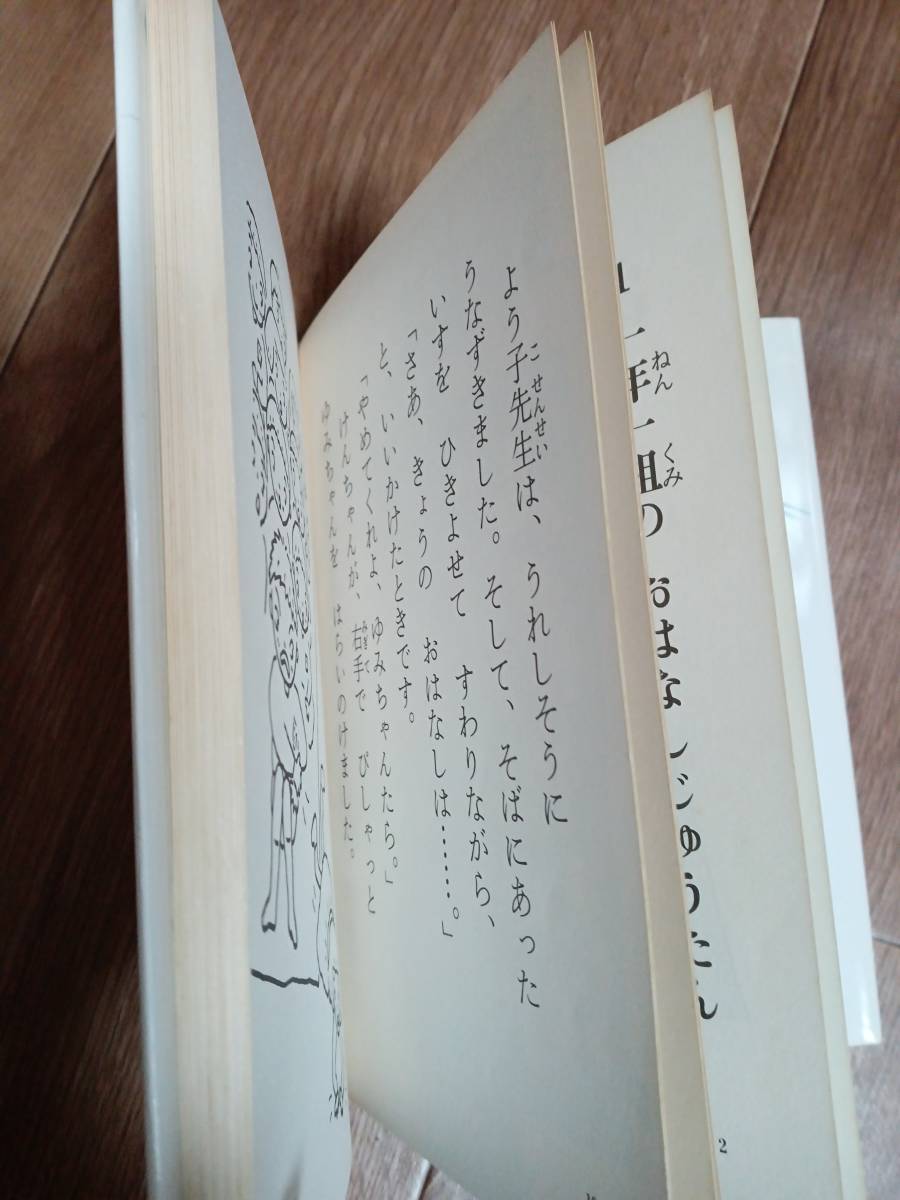 1 一年一組の おはなしじゅうたん
ねん
くみ
2
よう子先生は、うれしそうに
こせんせい
うなずきました。そして、そばにあった
いすを ひきよせて すわりながら、
「さあ、きょうの おはなしは……。」
と、いいかけたときです。
「やめてくれよ、ゆみちゃんたら。」
けんちゃんが、右手で ぴしゃっと
みぎて
ゆみちゃんを はらいのけました。